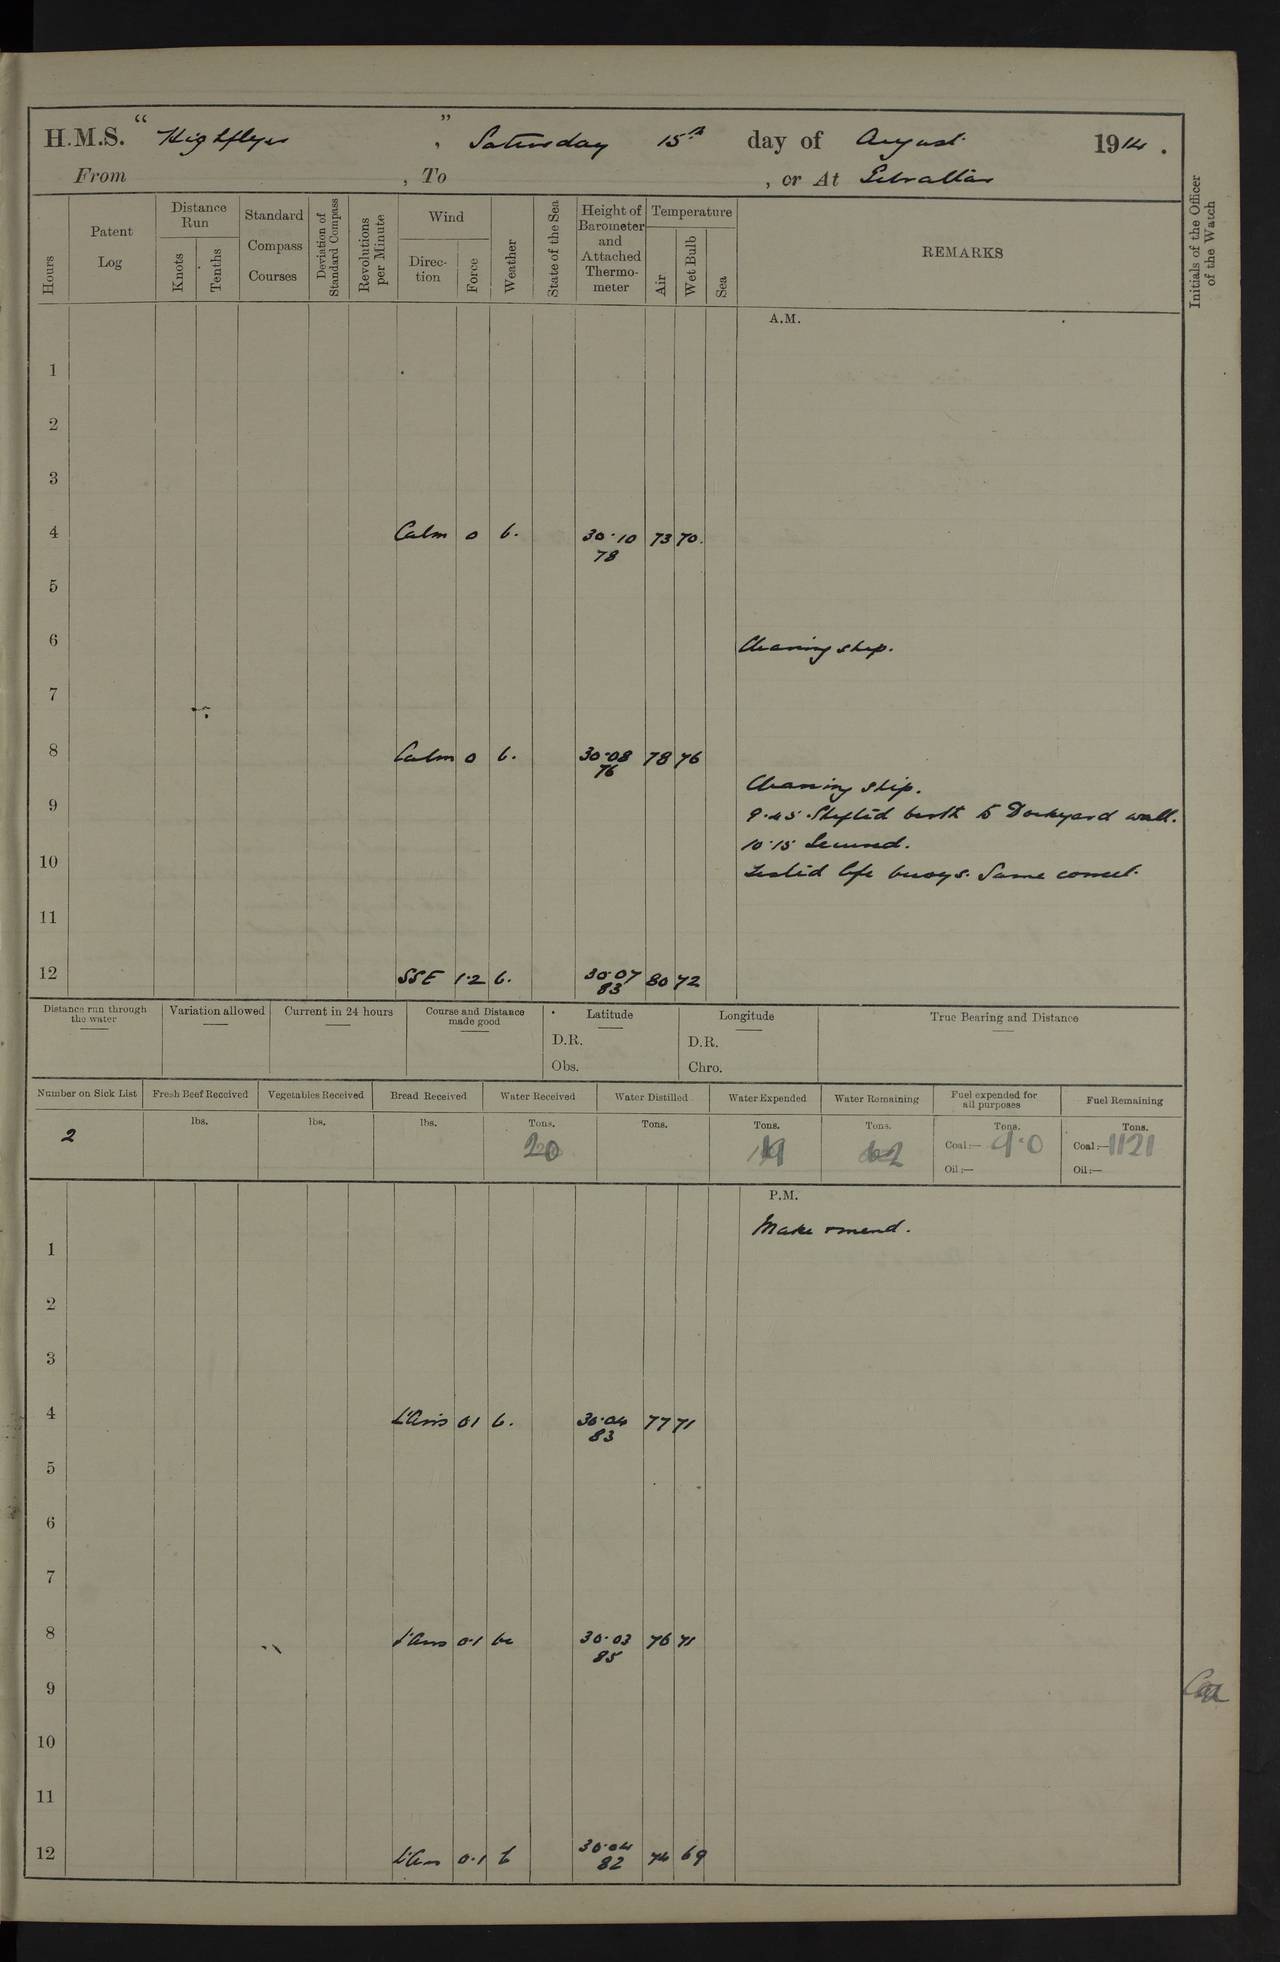 H.M.S. “ Highflyer ” , Saturday 15th day of August 1914 .
From , To , or At Gibraltar
Hours
Patent Log
Distance Run
Knots
Tenths
Standard Compass Courses
Deviation of Standard Compass
Revolutions per Minute
Wind
Direc-tion
Force
Weather
State of the Sea
Height of Barometer and Attached Thermo-meter
Temperature
Air
Wet Bulb
Sea
REMARKS
Initials of the Officer of the Watch
A.M.
1
2
3
4 Calm 0 b. 30.10 73 70.
78
5
6 Cleaning ship.
7
8 Calm 0 b. 30.08 78 76
76
Cleaning ship.
9 9.45 Shifted berth to Dockyard wall.
10.15 Secured.
10 Tested life buoys. Same correct.
11
12 SSE 1.2 b. 30.07 80 72
83
Distance run through the water
Variation allowed
Current in 24 hours
Course and Distance made good
Latitude
D.R.
Obs.
Longitude
D.R.
Chro.
True Bearing and Distance
Number on Sick List
2
Fresh Beef Received
lbs.
Vegetables Received
lbs.
Bread Received
lbs.
Water Received
Tons.
20
Water Distilled
Tons.
Water Expended
Tons.
19
Water Remaining
Tons.
Fuel expended for all purposes
Tons.
Coal:— 9.0
Oil:—
Fuel Remaining
Tons.
Coal:— 1121
Oil:—
P.M.
Make & mend.
1
2
3
4 L'Airs 0.1 b. 30.04 77 71
83
5
6
7
8 L'Airs 0.1 bc 30.03 76 71
85
9
10
11
12 L'Airs 0.1 b 30.04 74 69
82